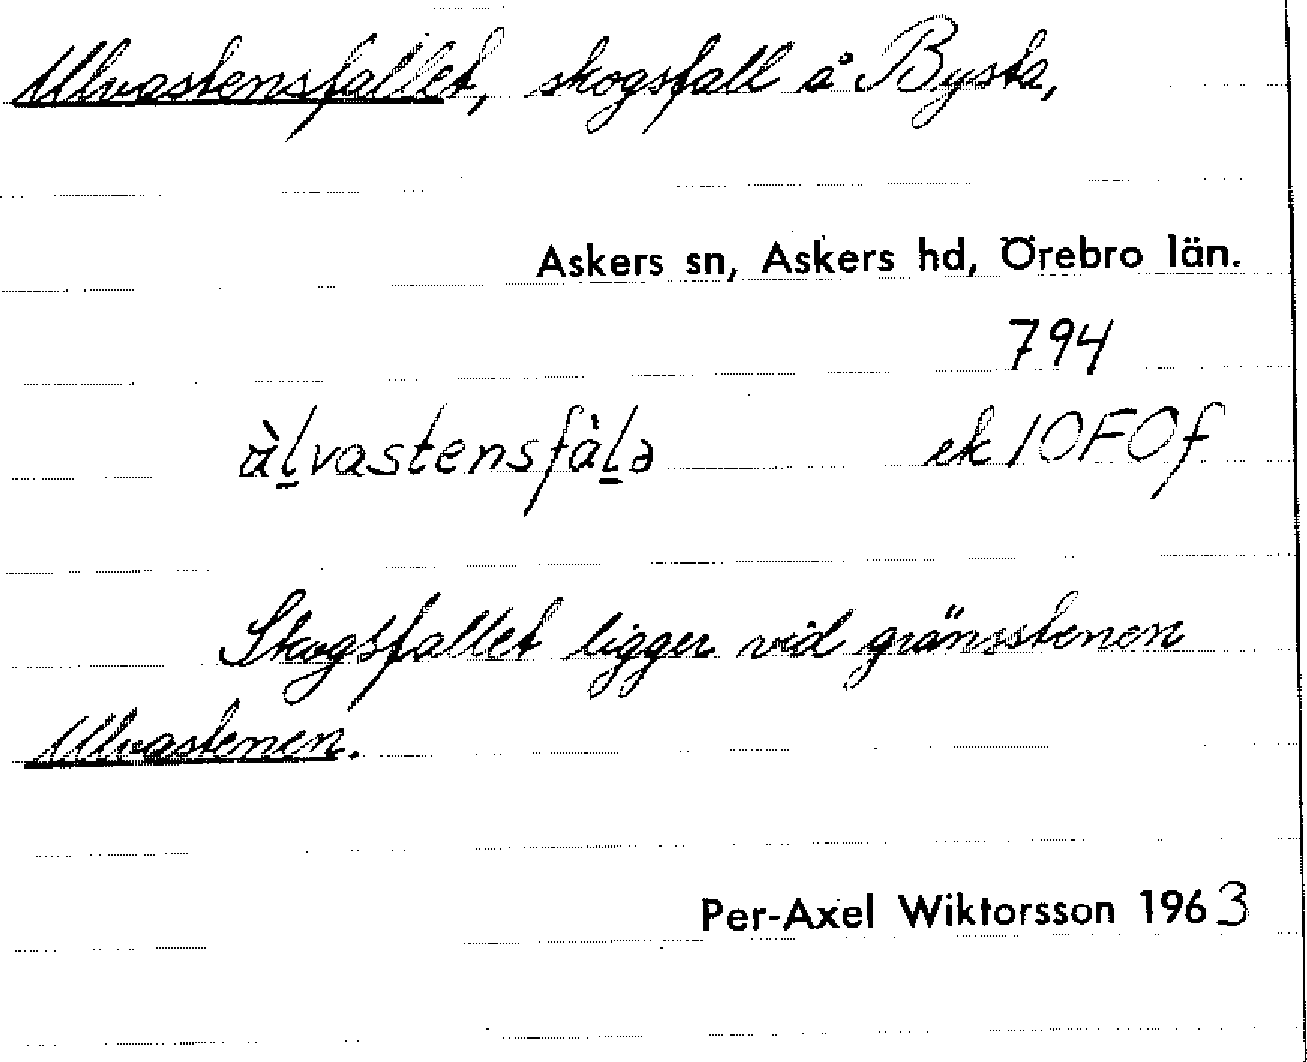 Ulvastensfallet, skogsfall å Bysta,
Askers sn, Askers hd, Örebro län.
794
ek 10F0f
Skogsfallet ligger vid gränsstenen
Ulvastenen.
Per-Axel Wiktorsson 1963